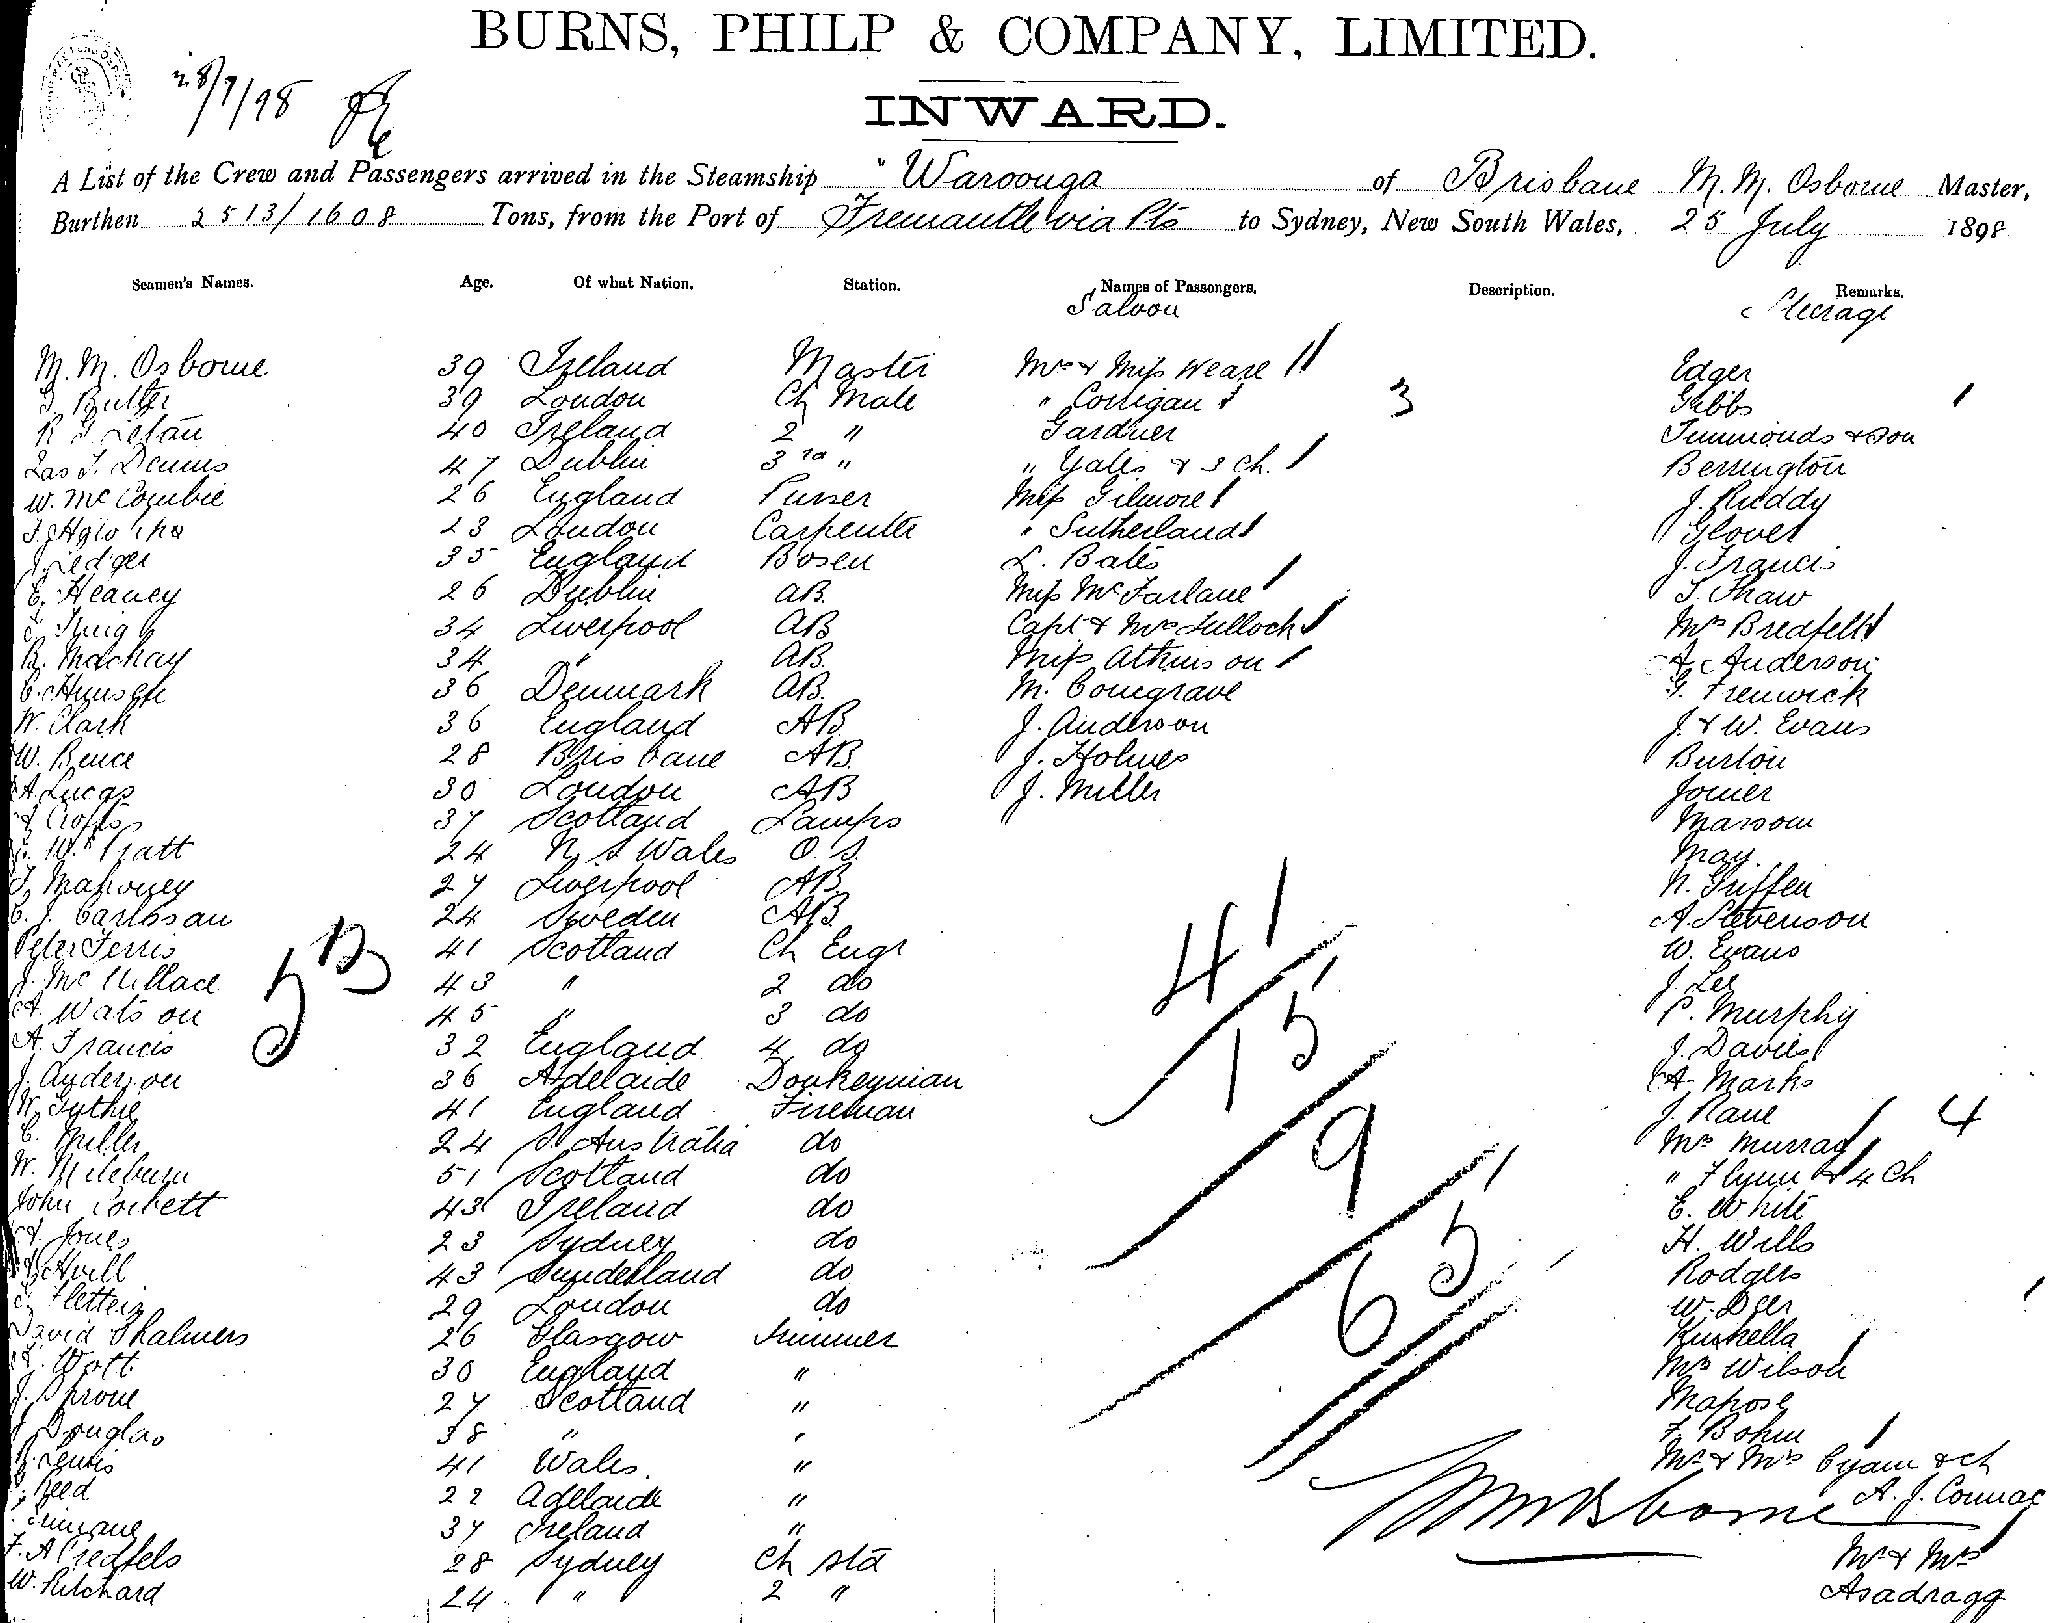 BURNS, PHILP & COMPANY, LIMITED.
28/7/98
INWARD.
A List of the Crew and Passengers arrived in the Steamship "Waroonga of Brisbane M. M. Osborne Master,
Burthen 2513/1608 Tons, from the Port of Fremantle via Pts to Sydney, New South Wales, 25 July 1898
Seamen's Names. Age. Of what Nation. Station. Names of Passengers. Description. Remarks.
Saloon Steerage
M. M. Osborne 39 Ireland Master Mr & Miss Wease Edger
Butler 39 London Ch Mate " Corrigan 3 Gibbs
40 Ireland 2 " Gardner Simmonds & Son
Jas J. Dennis 47 Dublin 3rd " " Yates & 3 ch. Bessington
W. McCombie 26 England Purser Miss Gilmore J. Ruddy
23 London Carpenter " Sutherland Glover
J. Ledger 35 England Bosen L. Bates J. Francis
E. Heaney 26 Dublin AB. Miss McFarlane T. Shaw
34 Liverpool AB Capt & Mrs Tulloch Mrs Bredfelt
R. Mackay 34 " AB. Miss Atkinson A. Anderson
C. Hansen 36 Denmark AB. M. Comgrave G. Fenwick
W. Clark 36 England AB. J. Anderson J. & W. Evans
W. Bence 28 Brisbane AB. J. Holmes Burton
A. Lucas 30 London AB J. Miller Joiner
Crofts 37 Scotland Lamps Marsom
W. Pratt 24 N S Wales O.S. May.
T. Mahoney 27 Liverpool AB. N. Griffen
C. J. Carlssan 24 Sweden AB. A. Stevenson
Peter Ferris 41 Scotland Ch Engr W. Evans
J. McWillace 43 " 2 do J. Lee
A. Watson 45 " 3 do P. Murphy
A. Francis 32 England 4 do J. Davies
J. Anderson 36 Adelaide Donkeyman A. Marks
W. Guthrie 41 England Fireman J. Rane 4
C. Miller 24 S Australia do Mrs Murray
W. Mileburn 51 Scotland do " Flynn & 4 Ch
John Corbett 43 Ireland do E. White
Jones 23 Sydney do H. Wills
43 Sunderland do Rodgers
29 London do W. Dyer
David Chalmers 26 Glasgow Trimmer
Wott 30 England " Mrs Wilson
J. Sprove 27 Scotland " Mapose
Douglas 38 " " F. Bohm
Lewis 41 Wales. " Mr & Mrs Cyam & ch
Reed 22 Adelaide " A. J. Connac
37 Ireland "
F. A. Bredfels 28 Sydney Ch Std Mr & Mrs
W. Pritchard 24 " 2 " Asadragg
53
41
15
9
65
M M Osborne